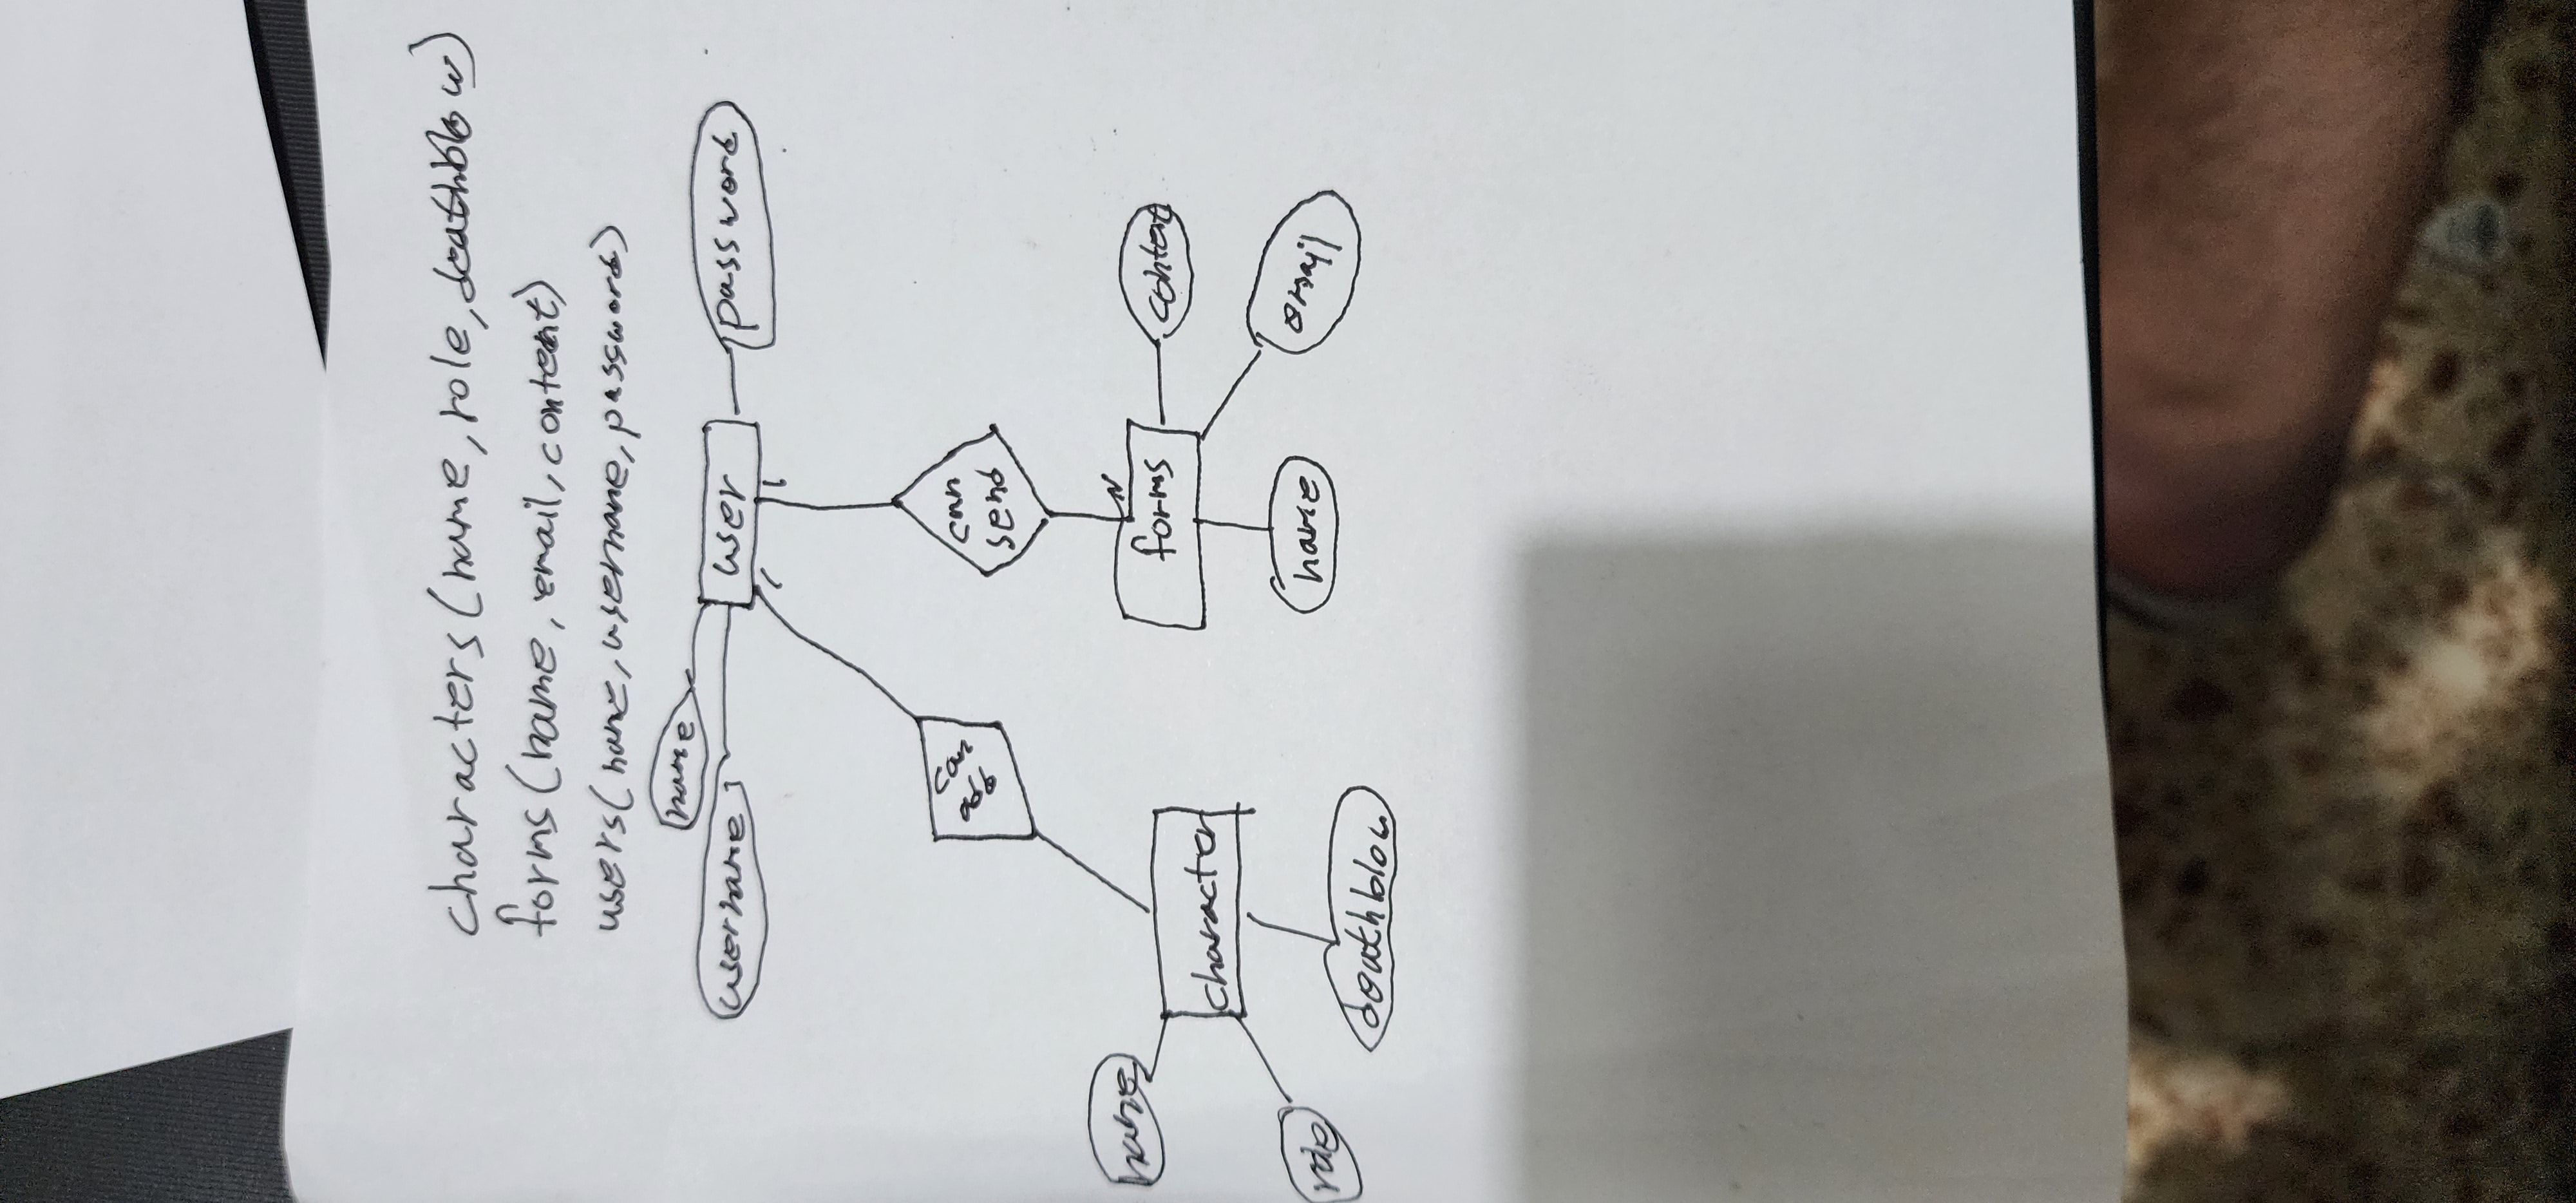 characters(name, role, deathblow)
forms(name, email, content)
users(name, username, password)
name
username
user
password
1
1
can
add
can
send
N
name
character
forms
content
role
deathblow
name
email